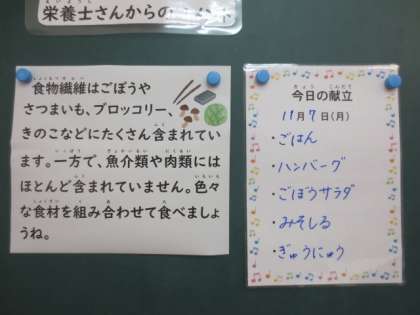 栄養士さんからの
食物繊維はごぼうや
さつまいも、ブロッコリー、
きのこなどにたくさん含まれてい
ます。一方で、魚介類や肉類には
ほとんど含まれていません。色々
な食材を組み合わせて食べましょ
うね。
今日の献立
11月7日(月)
・ごはん
・ハンバーグ
・ごぼうサラダ
・みそしる
・ぎゅうにゅう